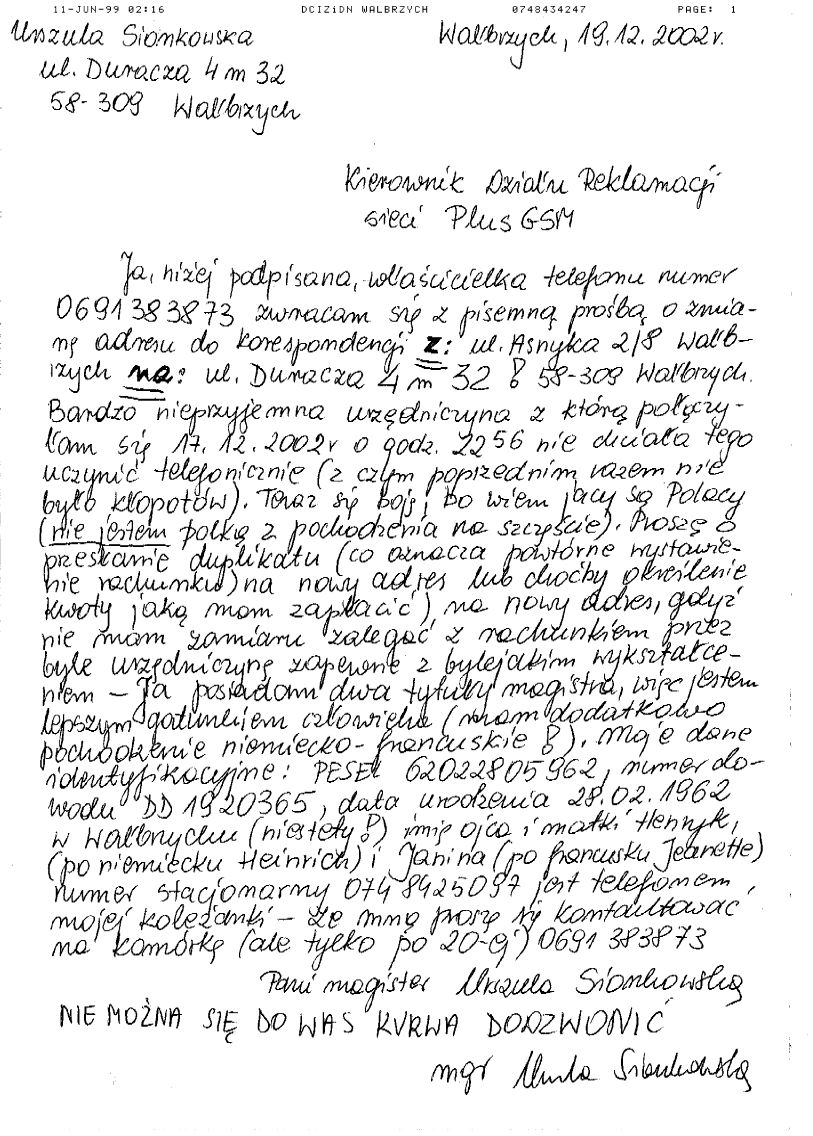 11-JUN-99 02:16 DCIZiDN WALBRZYCH 0748434247 PAGE: 1
Urszula Siomkowska Wałbrzych, 19.12.2002r.
ul. Duracza 4 m 32
58-309 Wałbrzych
Kierownik Działu Reklamacji
sieci Plus GSM
Ja, niżej podpisana, właścicielka telefonu numer
0691383873 zwracam się z pisemną prośbą o zmia-
nę adresu do korespondencji z: ul. Asnyka 2/8 Wałb-
rzych na: ul. Duracza 4 m 32 ! 58-309 Wałbrzych.
Bardzo nieprzyjemna urzędniczyna z którą połączy-
łam się 17.12.2002r o godz. 2256 nie chciała tego
uczynić telefonicznie (z czym poprzednim razem nie
było kłopotów). Teraz się boję, bo wiem jacy są Polacy
(nie jestem polką z pochodzenia na szczęście). Proszę o
przesłanie duplikatu (co oznacza powtórne wystawie-
nie rachunku) na nowy adres lub choćby określenie
kwoty jaką mam zapłacić), na nowy adres, gdyż
nie mam zamiaru zalegać z rachunkiem przez
byle urzędniczynę zapewne z bylejakim wykształce-
niem – Ja posiadam dwa tytuły magistra, więc jestem
lepszym gatunkiem człowieka (mam dodatkowo
pochodzenie niemiecko-francuskie !). Moje dane
identyfikacyjne: PESEL 62022805962, numer do-
wodu DD 1920365, data urodzenia 28.02.1962
w Wałbrzychu (niestety!) imię ojca i matki Henryk,
(po niemiecku Heinrich) i Janina (po francusku Jeanette)
numer stacjonarny 0748425097 jest telefonem
mojej koleżanki – ze mną proszę się kontaktować
na komórkę (ale tylko po 20-ej) 0691383873
Pani magister Urszula Siomkowska
NIE MOŻNA SIĘ DO WAS KURWA DODZWONIĆ
mgr Urszula Siomkowska